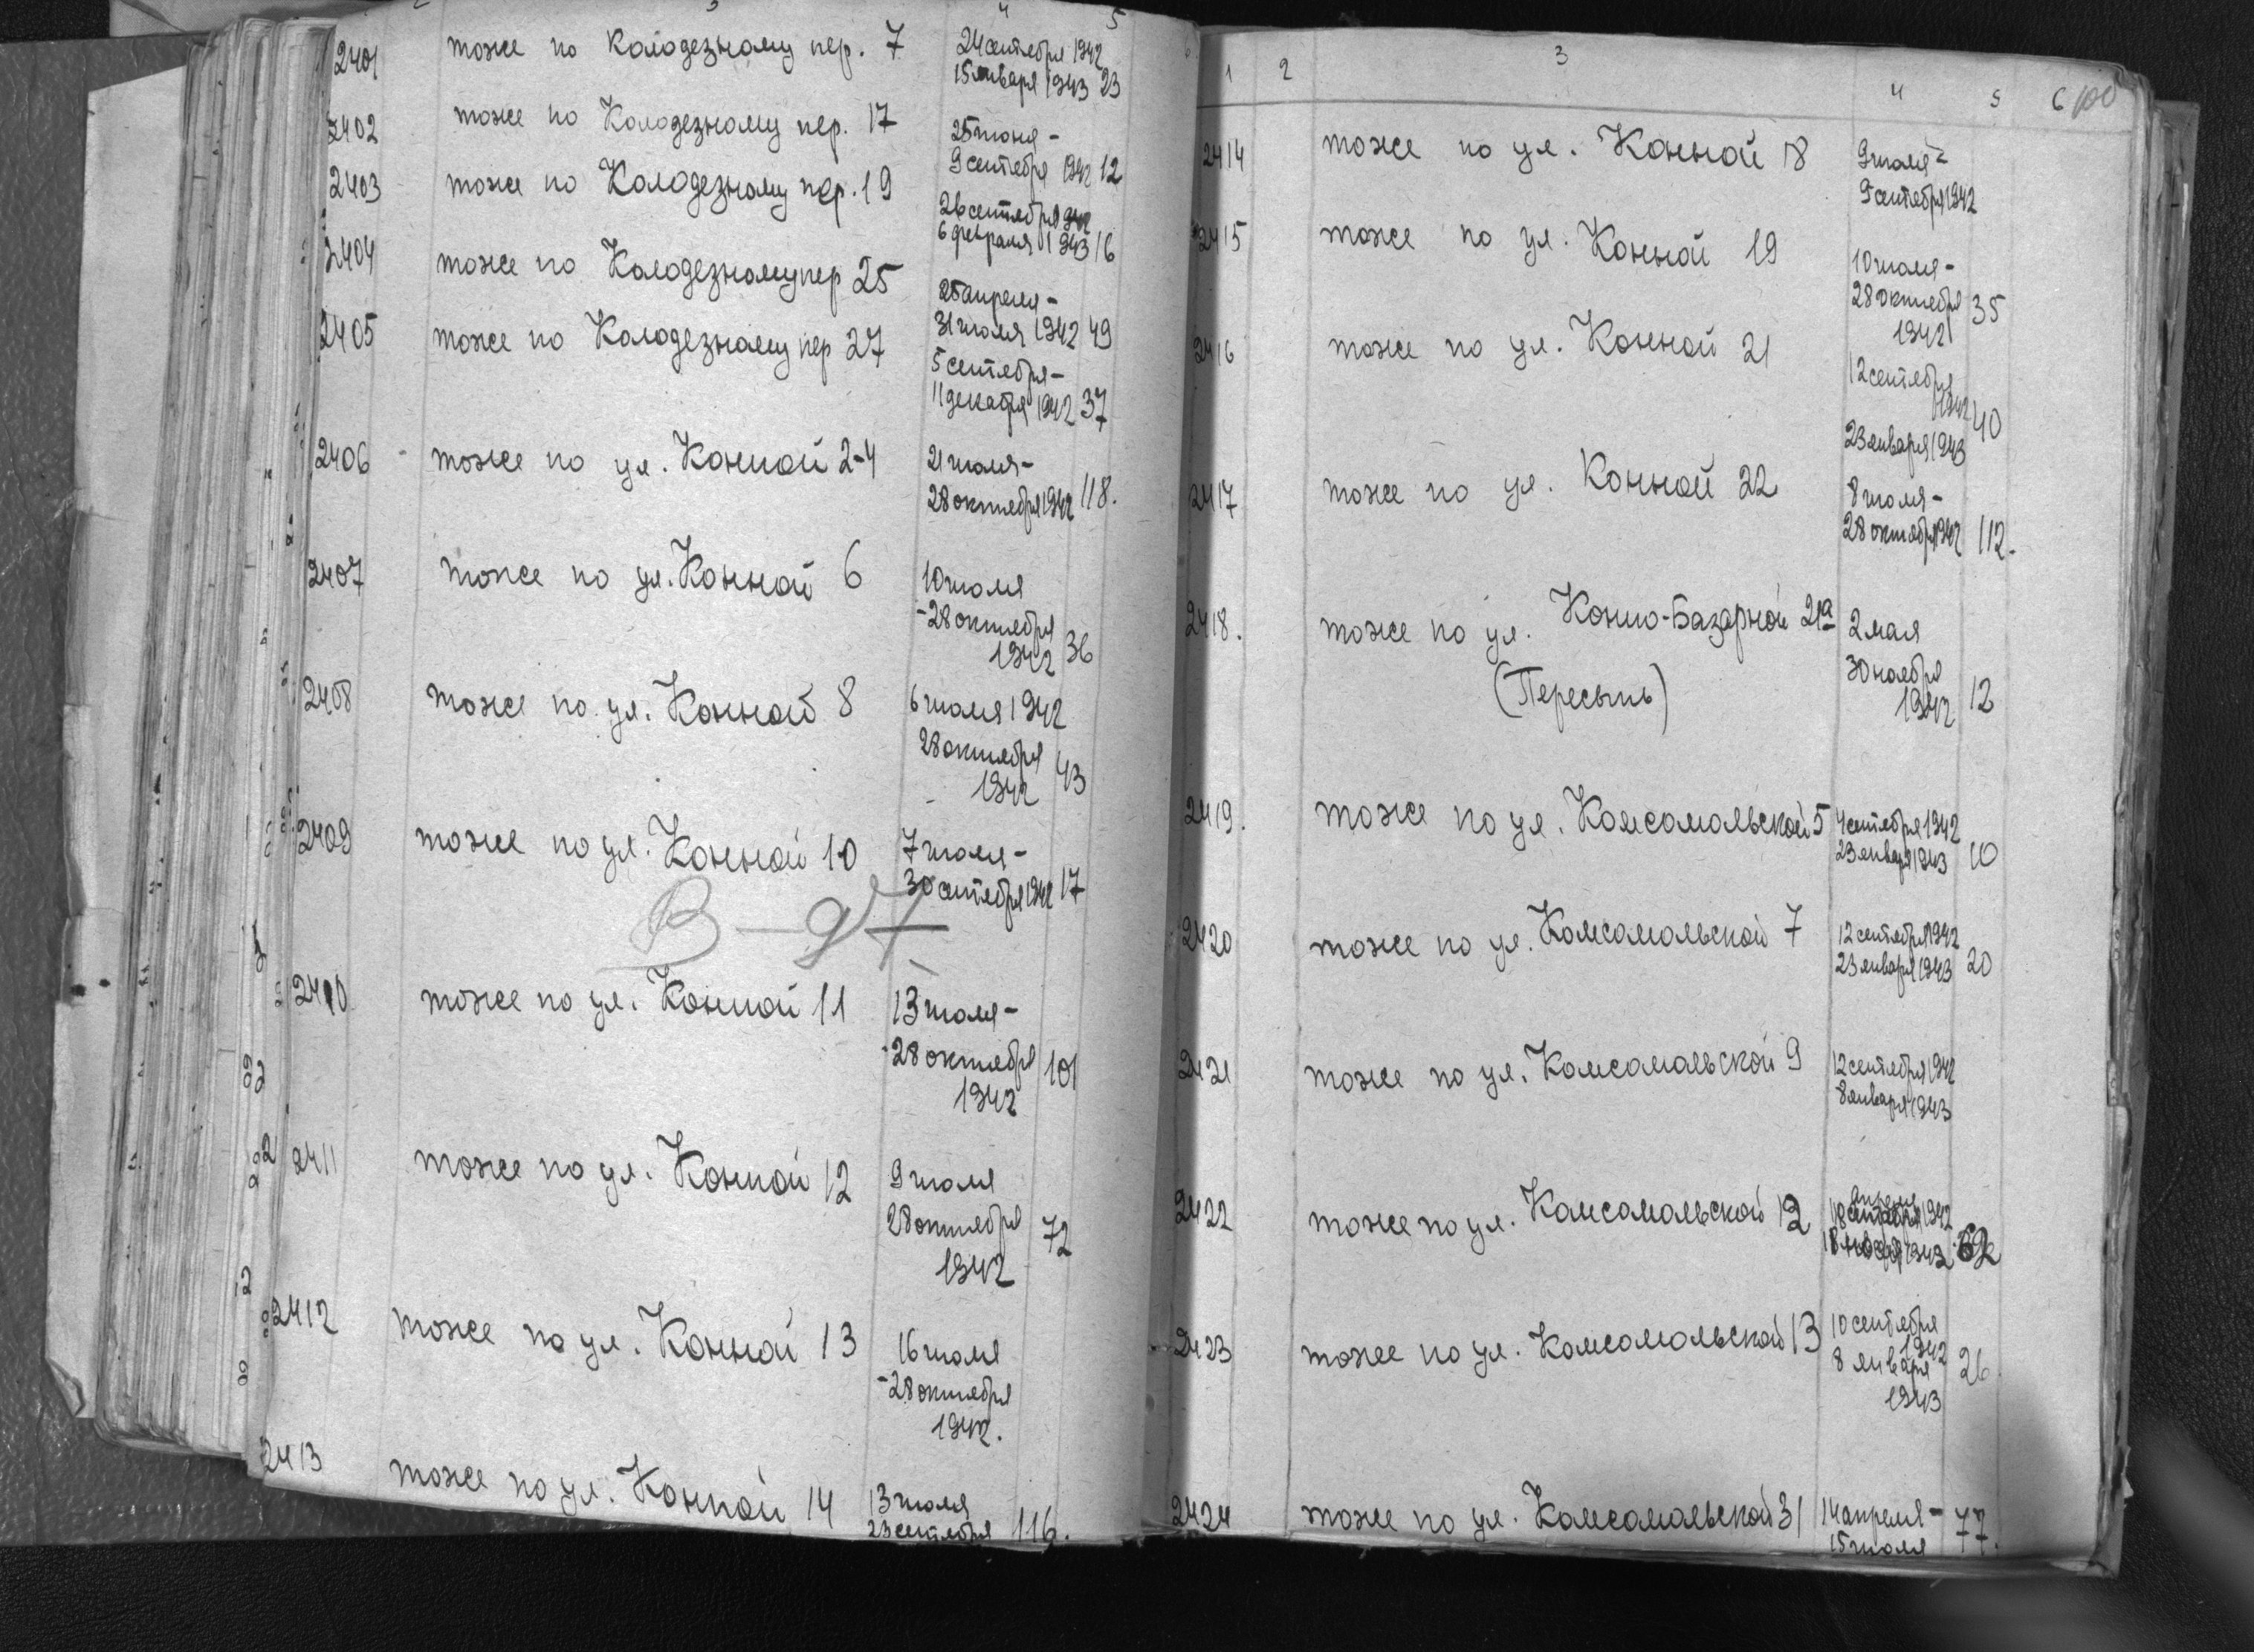 2 3 4 5
2401 тоже по Колодезному пер. 7 24 сентября 1942
15 января 1943 23
2402 тоже по Колодезному пер. 17 25 июня -
9 сентября 1942 12
2403 тоже по Колодезному пер. 19 26 сентября 1942
6 февраля 1943 16
2404 тоже по Колодезному пер 25 25 апреля -
31 июля 1942 49
2405 тоже по Колодезному пер 27 5 сентября -
11 декабря 1942 37
2406 тоже по ул. Конной 2-4 21 июля -
28 октября 1942 118.
2407 тоже по ул. Конной 6 10 июля
-28 октября
1942 36
2408 тоже по ул. Конной 8 6 июля 1942
28 октября
1942 43
2409 тоже по ул. Конной 10 7 июля -
30 сентября 1942 17
2410 тоже по ул. Конной 11 13 июля -
-28 октября
1942 101
2411 тоже по ул. Конной 12 9 июля
28 октября
1942 72
2412 тоже по ул. Конной 13 16 июля
-28 октября
1942.
2413 тоже по ул. Конной 14 13 июля
23 сентября 116.
1 2 3 4 5 6 100
2414 тоже по ул. Конной 18 9 июля -
9 сентября 1942
2415 тоже по ул. Конной 19 10 июля -
28 октября
1942 35
2416 тоже по ул. Конной 21 12 сентября
1942
23 января 1943 40
2417 тоже по ул. Конной 22 8 июля -
28 октября 1942 112.
2418. тоже по ул. Конно-Базарной 21а 2 мая
(Пересыпь) 30 ноября
1942 12
2419. тоже по ул. Комсомольской 5 4 сентября 1942
23 января 1943 10
2420 тоже по ул. Комсомольской 7 12 сентября 1942
23 января 1943 20
2421 тоже по ул. Комсомольской 9 12 сентября 1942
8 января 1943
2422 тоже по ул. Комсомольской 12 апреля 1942
62
2423 тоже по ул. Комсомольской 13 10 сентября
1942
8 января
1943 26
2424 тоже по ул. Комсомольской 31 14 апреля -
15 июля 77.